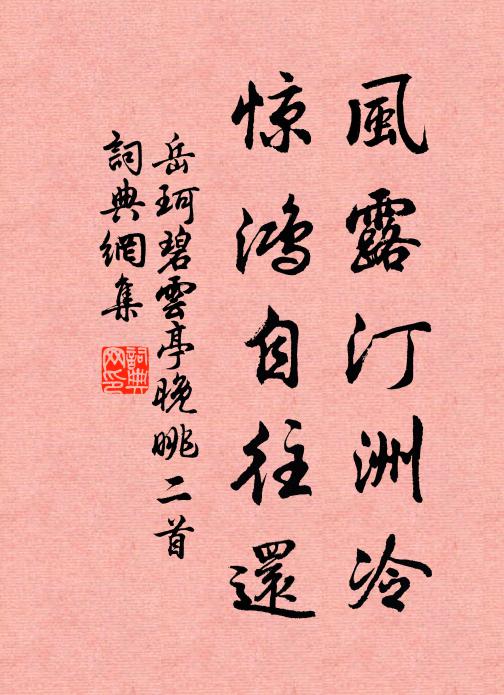 風露汀洲冷
惊鸿自往還
岳珂碧雲亭晚眺二首
詞典網集
詞典网印